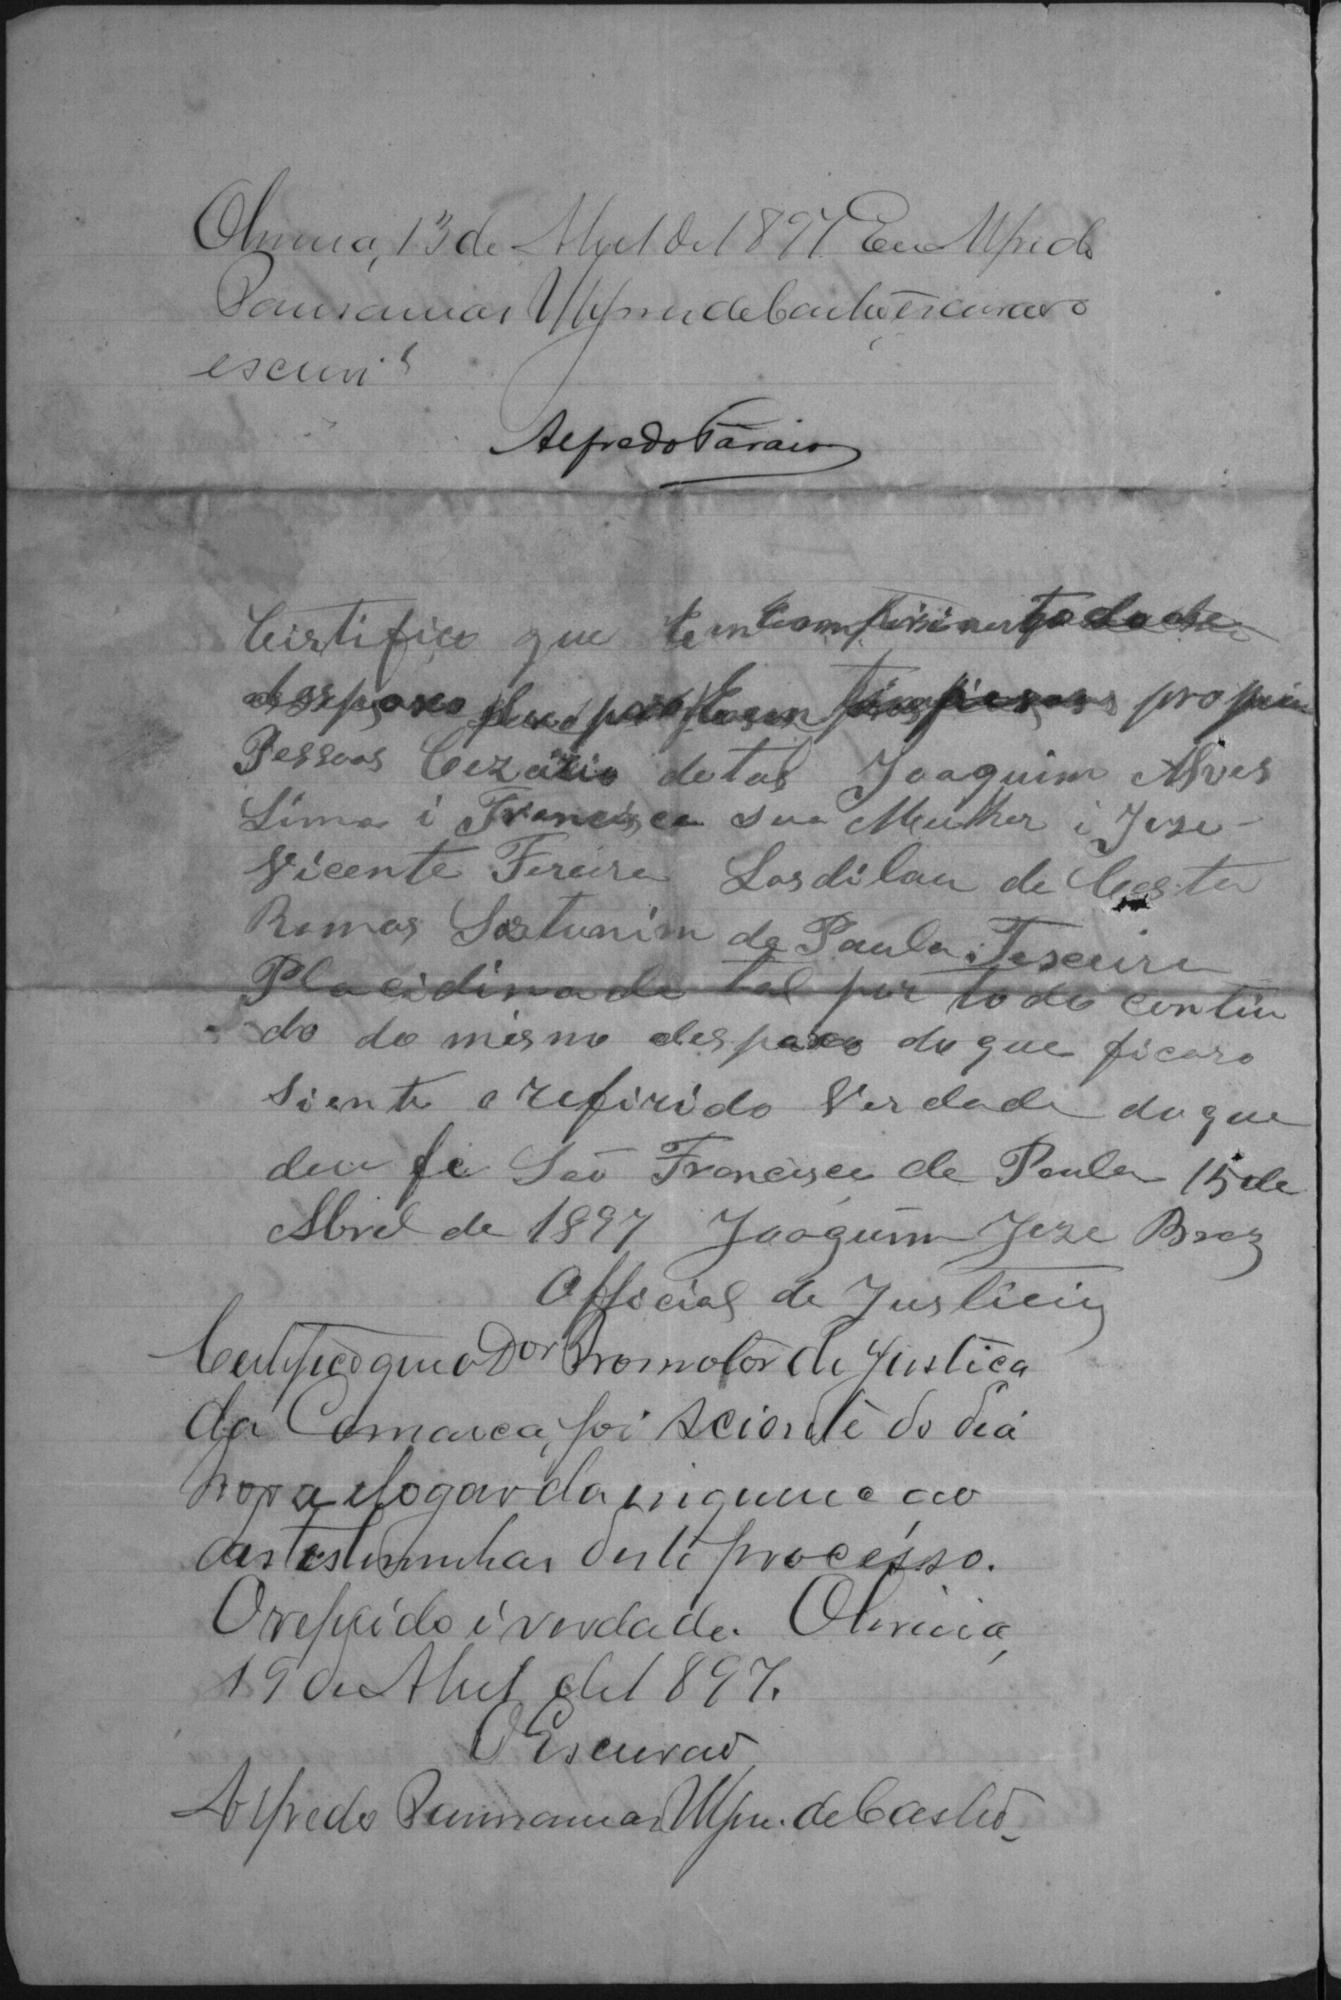 Oliveira, 13 de Abril de 1897 Eu Alfredo
de Castro escrivão o
escrevi
Alfredo
Certifico que em comprimento do
despaxo propria
Pessoas Cezário de tal Joaquim Alves
Lima i Francisca sua Mulher i Joze
Vicente Fereira Lasdilau de Costa
Ramos Saturnim de Paula Teseira
Placidina de tal por todo contiu
do do mesmo despaxo do que ficaro
siente o refirido Verdade do que
dou fé São Francisco de Paula 15 de
Abril de 1897 Joaquim Joze Braz
Official de Justicia
Certifico que o Dor Promotor de Justica
da Comarca, foi sciente do dia
hora e logar da inquirição
das testimunhas deste processo.
O referido é verdade. Oliveira,
19 de Abril de 1897.
O Escrivão
Alfredo de Castro